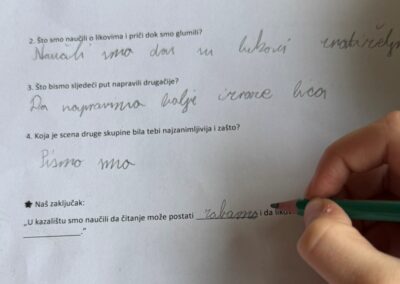 2. Što smo naučili o likovima i priči dok smo glumili?
Naučili smo da su likovi
3. Što bismo sljedeći put napravili drugačije?
Da napravimo bolje izraze lica
4. Koja je scena druge skupine bila tebi najzanimljivija i zašto?
Pismo
★ Naš zaključak:
„U kazalištu smo naučili da čitanje može postati zabavno i da
."